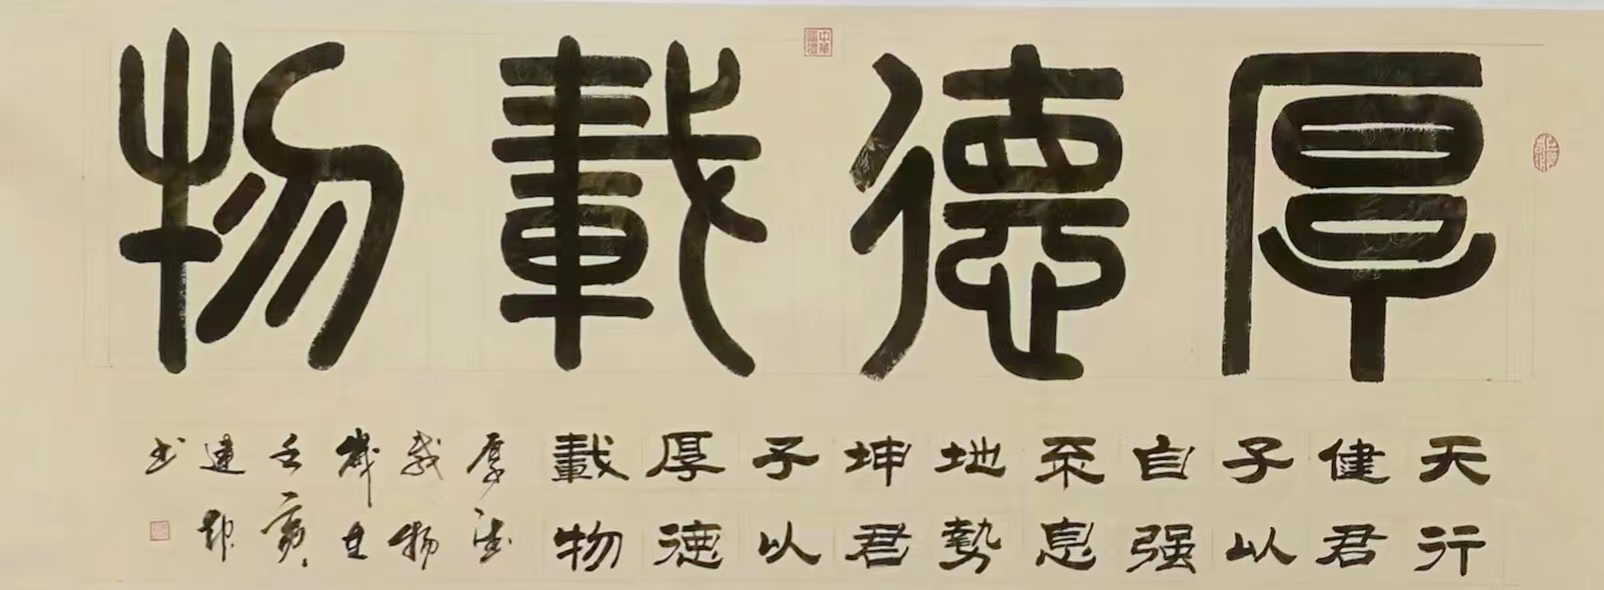 厚德載物
天行
健君
子以
自强
不息
地勢
坤君
子以
厚德
載物
厚德
載物
歲在
壬寅
书